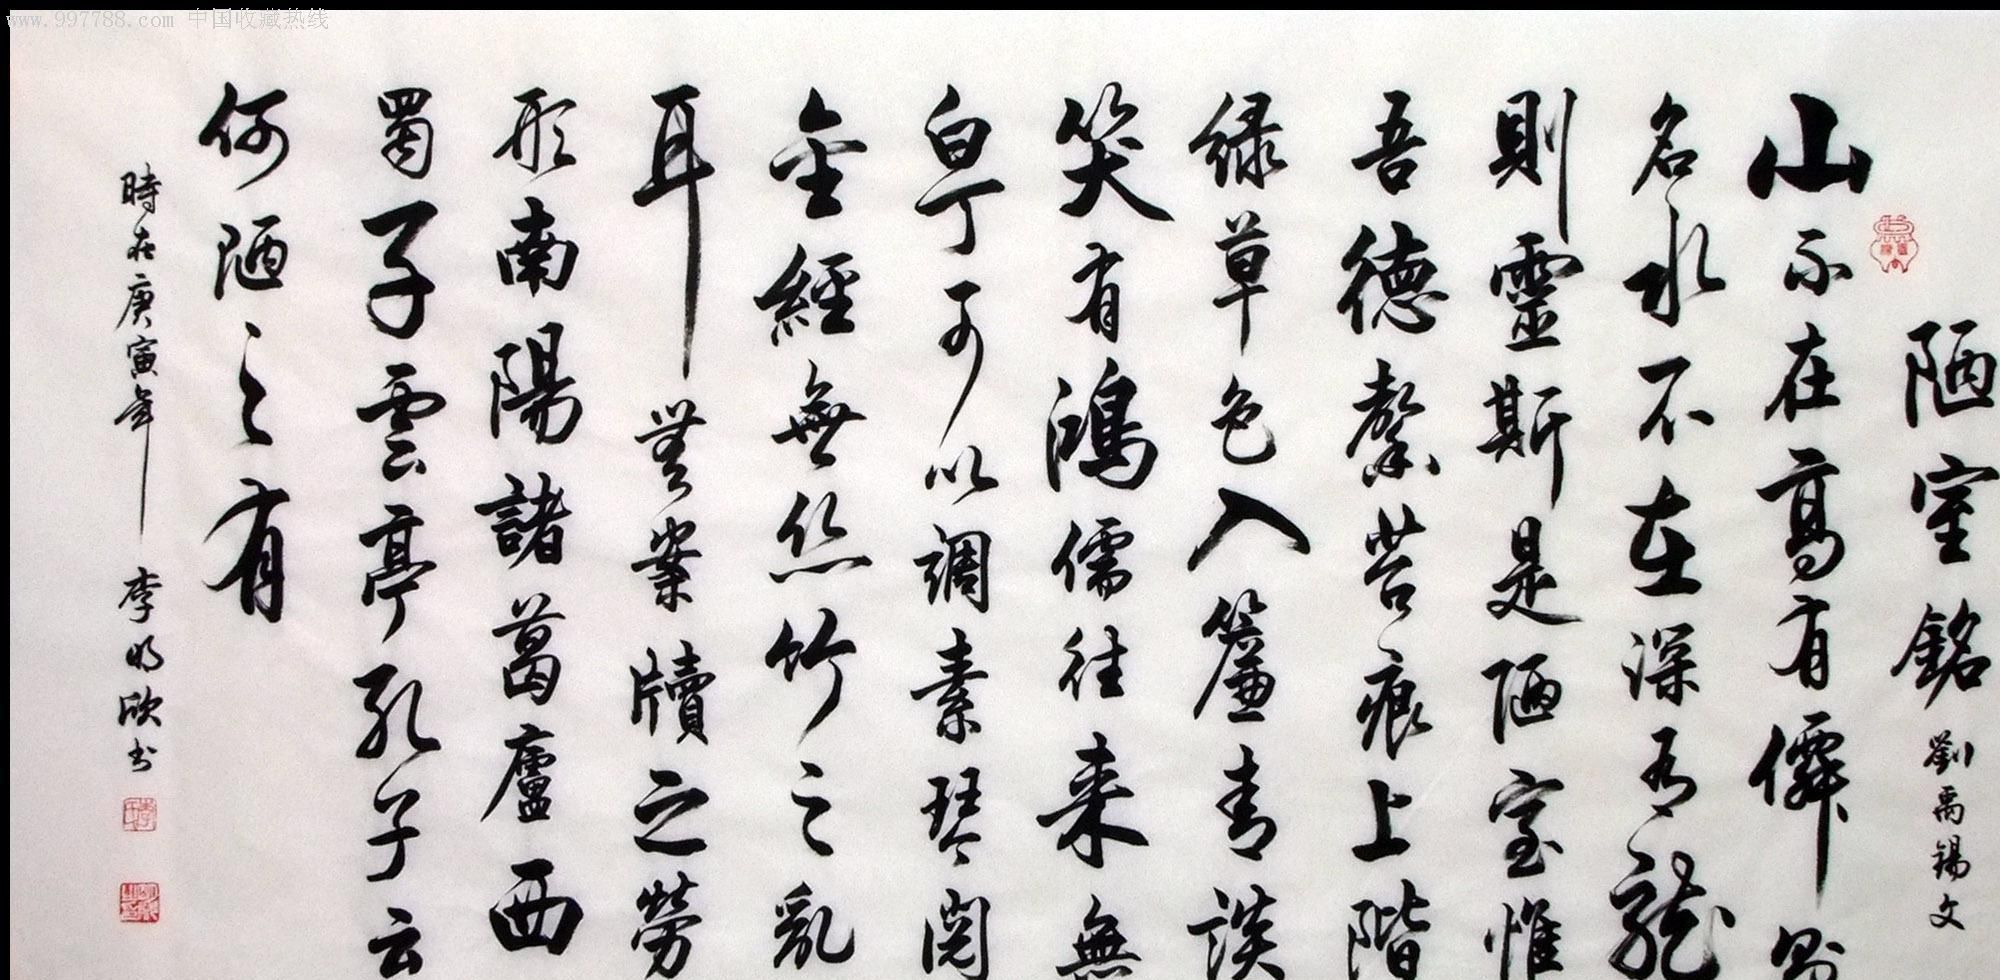 www.997788.com 中国收藏热线
陋室銘 劉禹錫文
山不在高有僊則
名水不在深有龍
則靈斯是陋室惟
吾德馨苔痕上階
緑草色入簾青談
笑有鴻儒往来無
白丁可以調素琴閱
金經無丝竹之亂
耳無案牘之勞
形南陽諸葛廬西
蜀子雲亭孔子云
何陋之有
時在庚寅年 李明欣书